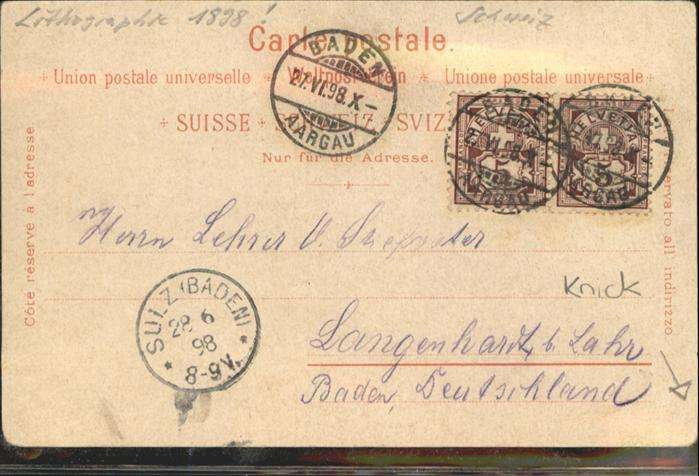 Lithographie 1898! Schweiz
Carte postale.
Union postale universelle * Weltpostverein * Unione postale universale
* SUISSE * SCHWEIZ * SVIZ
Nur für die Adresse.
BADEN
27.VI.98.X-
AARGAU
HELVETIA
5
BADEN
AARGAU
HELVETIA
5
AARGAU
Côté réservé à l'adresse
servato all indirizzo
Herrn Lehrer
Knick
SULZ (BADEN)
28 6
98
8-9V.
Langenhardt, b. Lahr
Baden, Deutschland